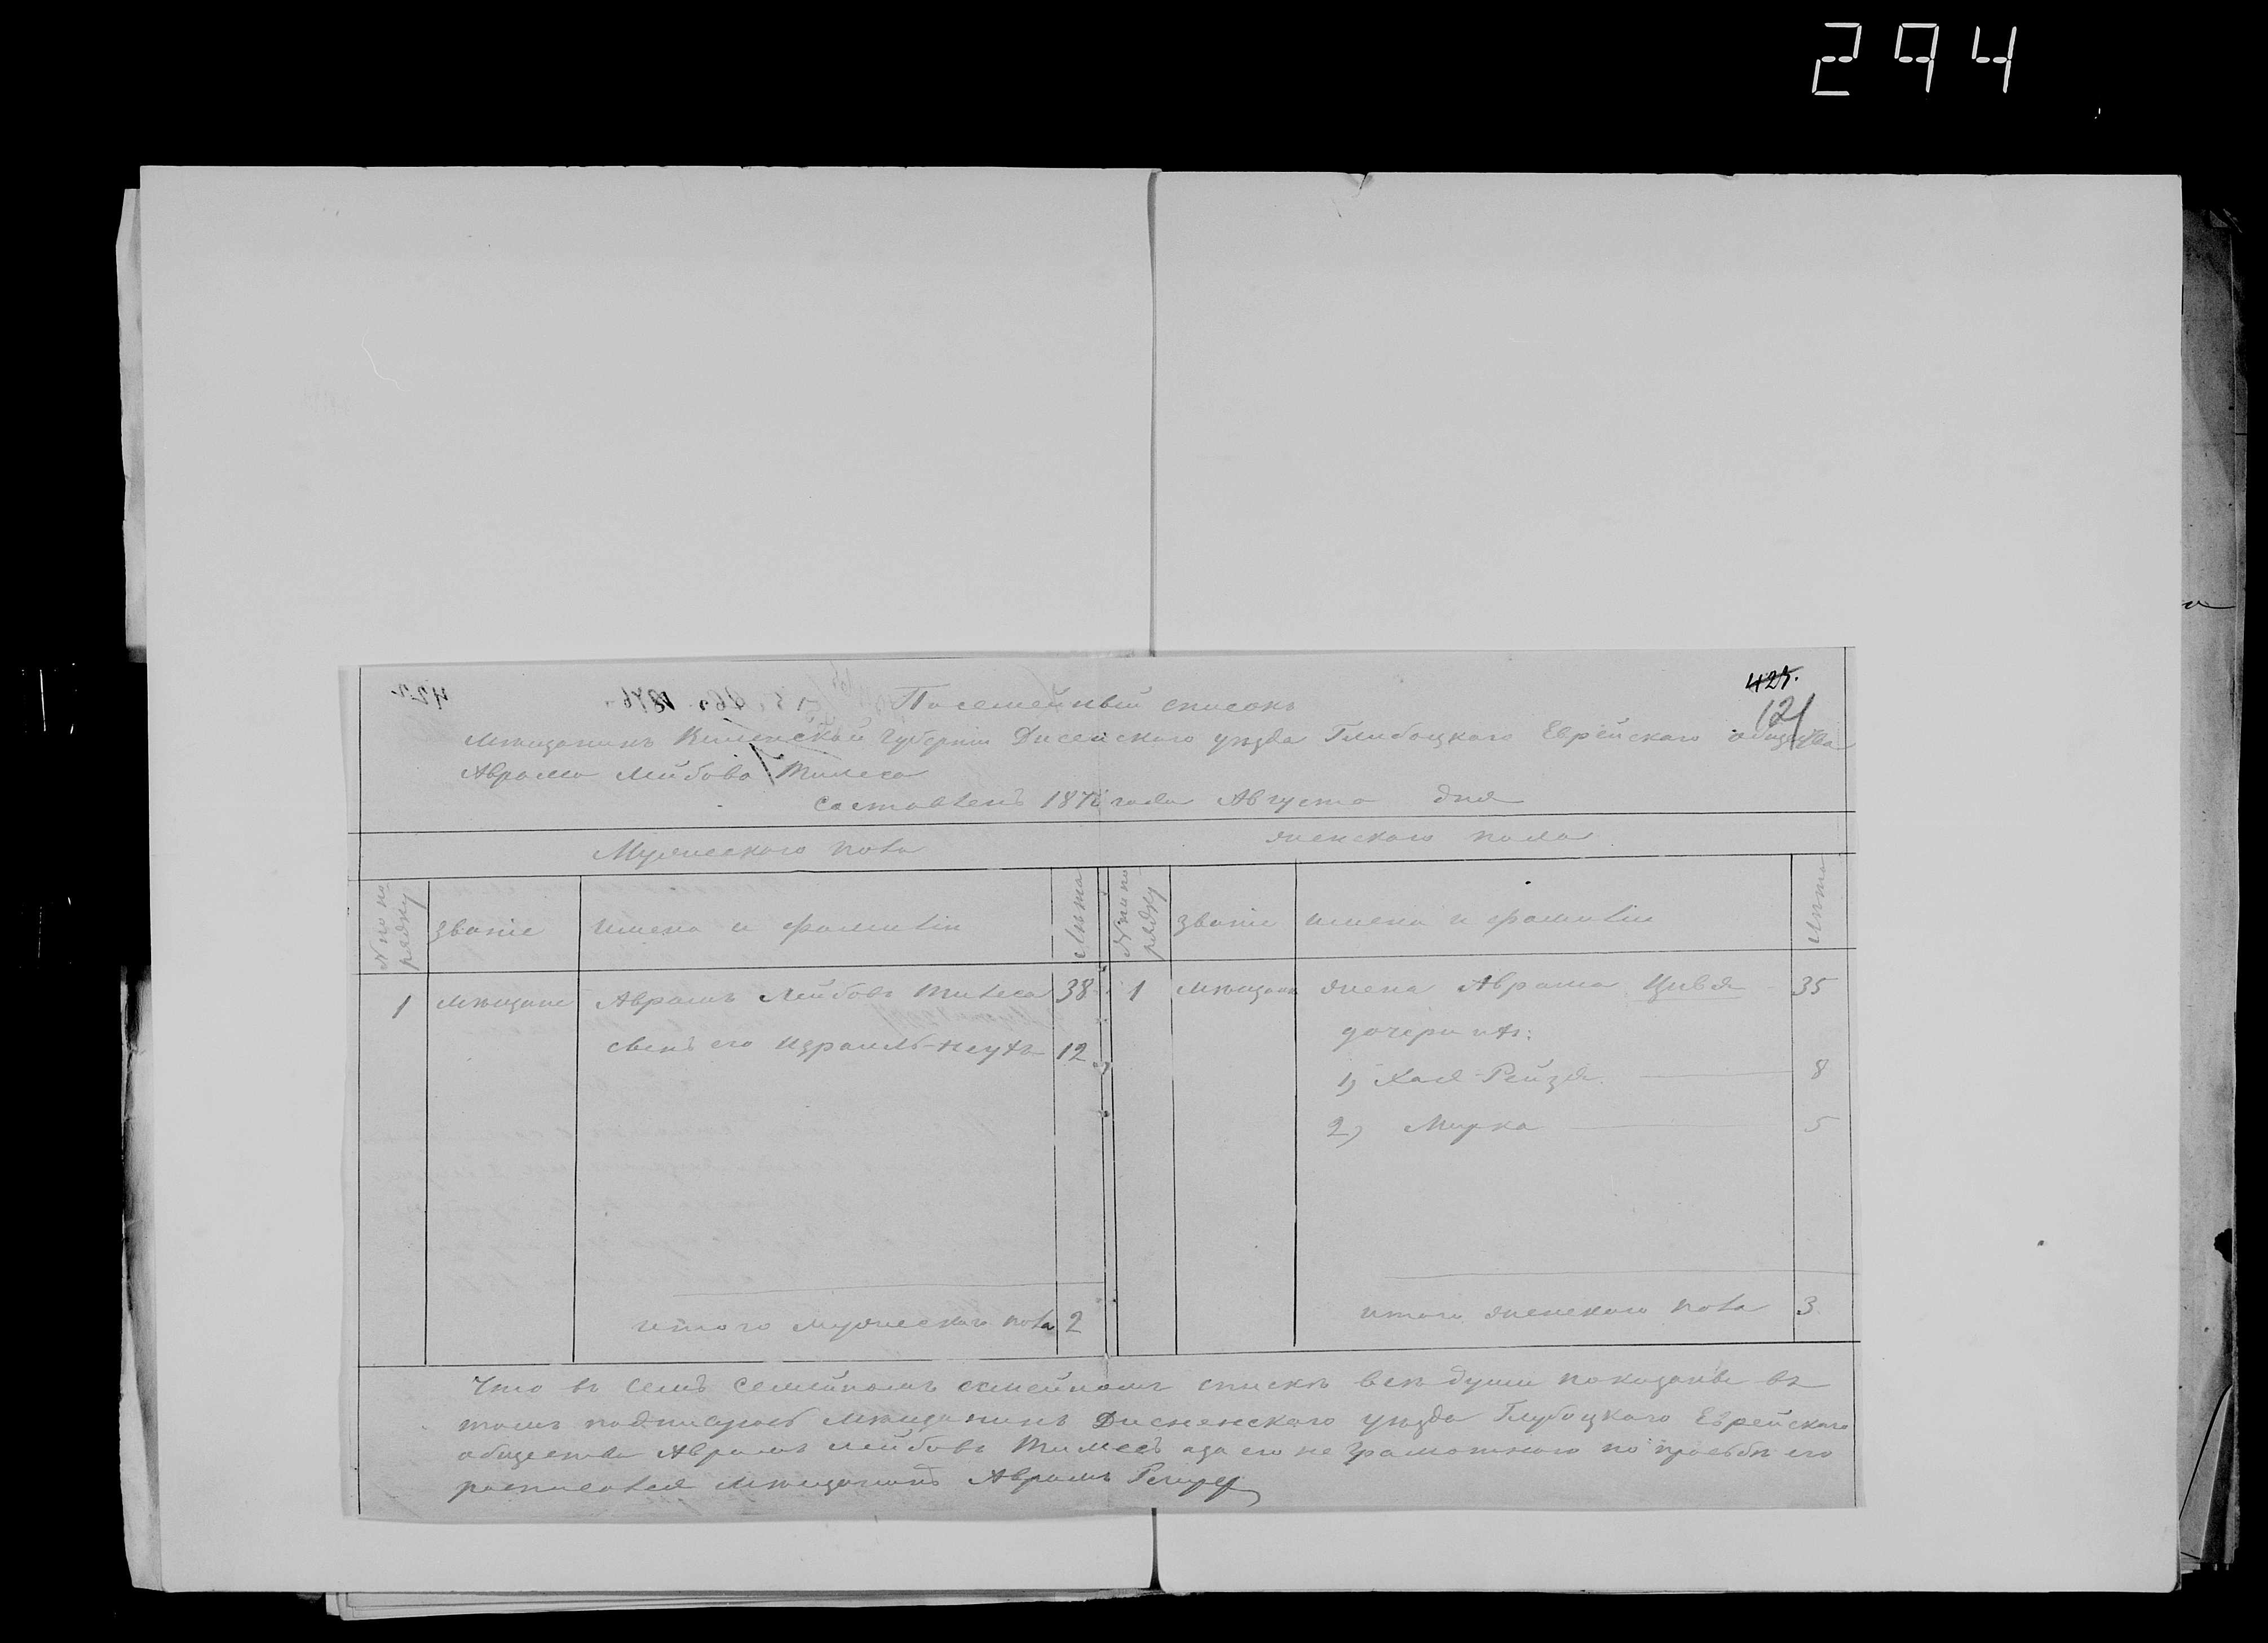 294
425.
121
Посемейный списокъ
мѣщанинъ Виленской губерніи Дисенского уѣзда Глибоцкаго Еврейскаго общества
Аврама Лейбова Тилеса
составленъ 187 года Августа дня
Мужескаго пола
женскаго пола
№ по порядку
званіе
имена и фамиліи
Лѣта
№ по порядку
званіе
имена и фамиліи
Лѣта
1 мѣщане Аврамъ Лейбовъ Тилеса 38
1 мѣщане жена Аврама Цивья 35
сынъ его Израиль- 12
дочери ихъ:
1) Хая-Рейзя 8
2) Мирка 5
итого мужескаго пола 2
итого женскаго пола 3
Что въ семъ семейномъ семейномъ спискѣ всѣ души показаны въ
томъ подписуюсь мѣщанинъ Дисненскаго уѣзда Глубоцкаго Еврейскаго
общества Аврамъ Лейбовъ Тилесъ а за его не грамотного по просьбѣ его
росписался мѣщанинъ Аврамъ